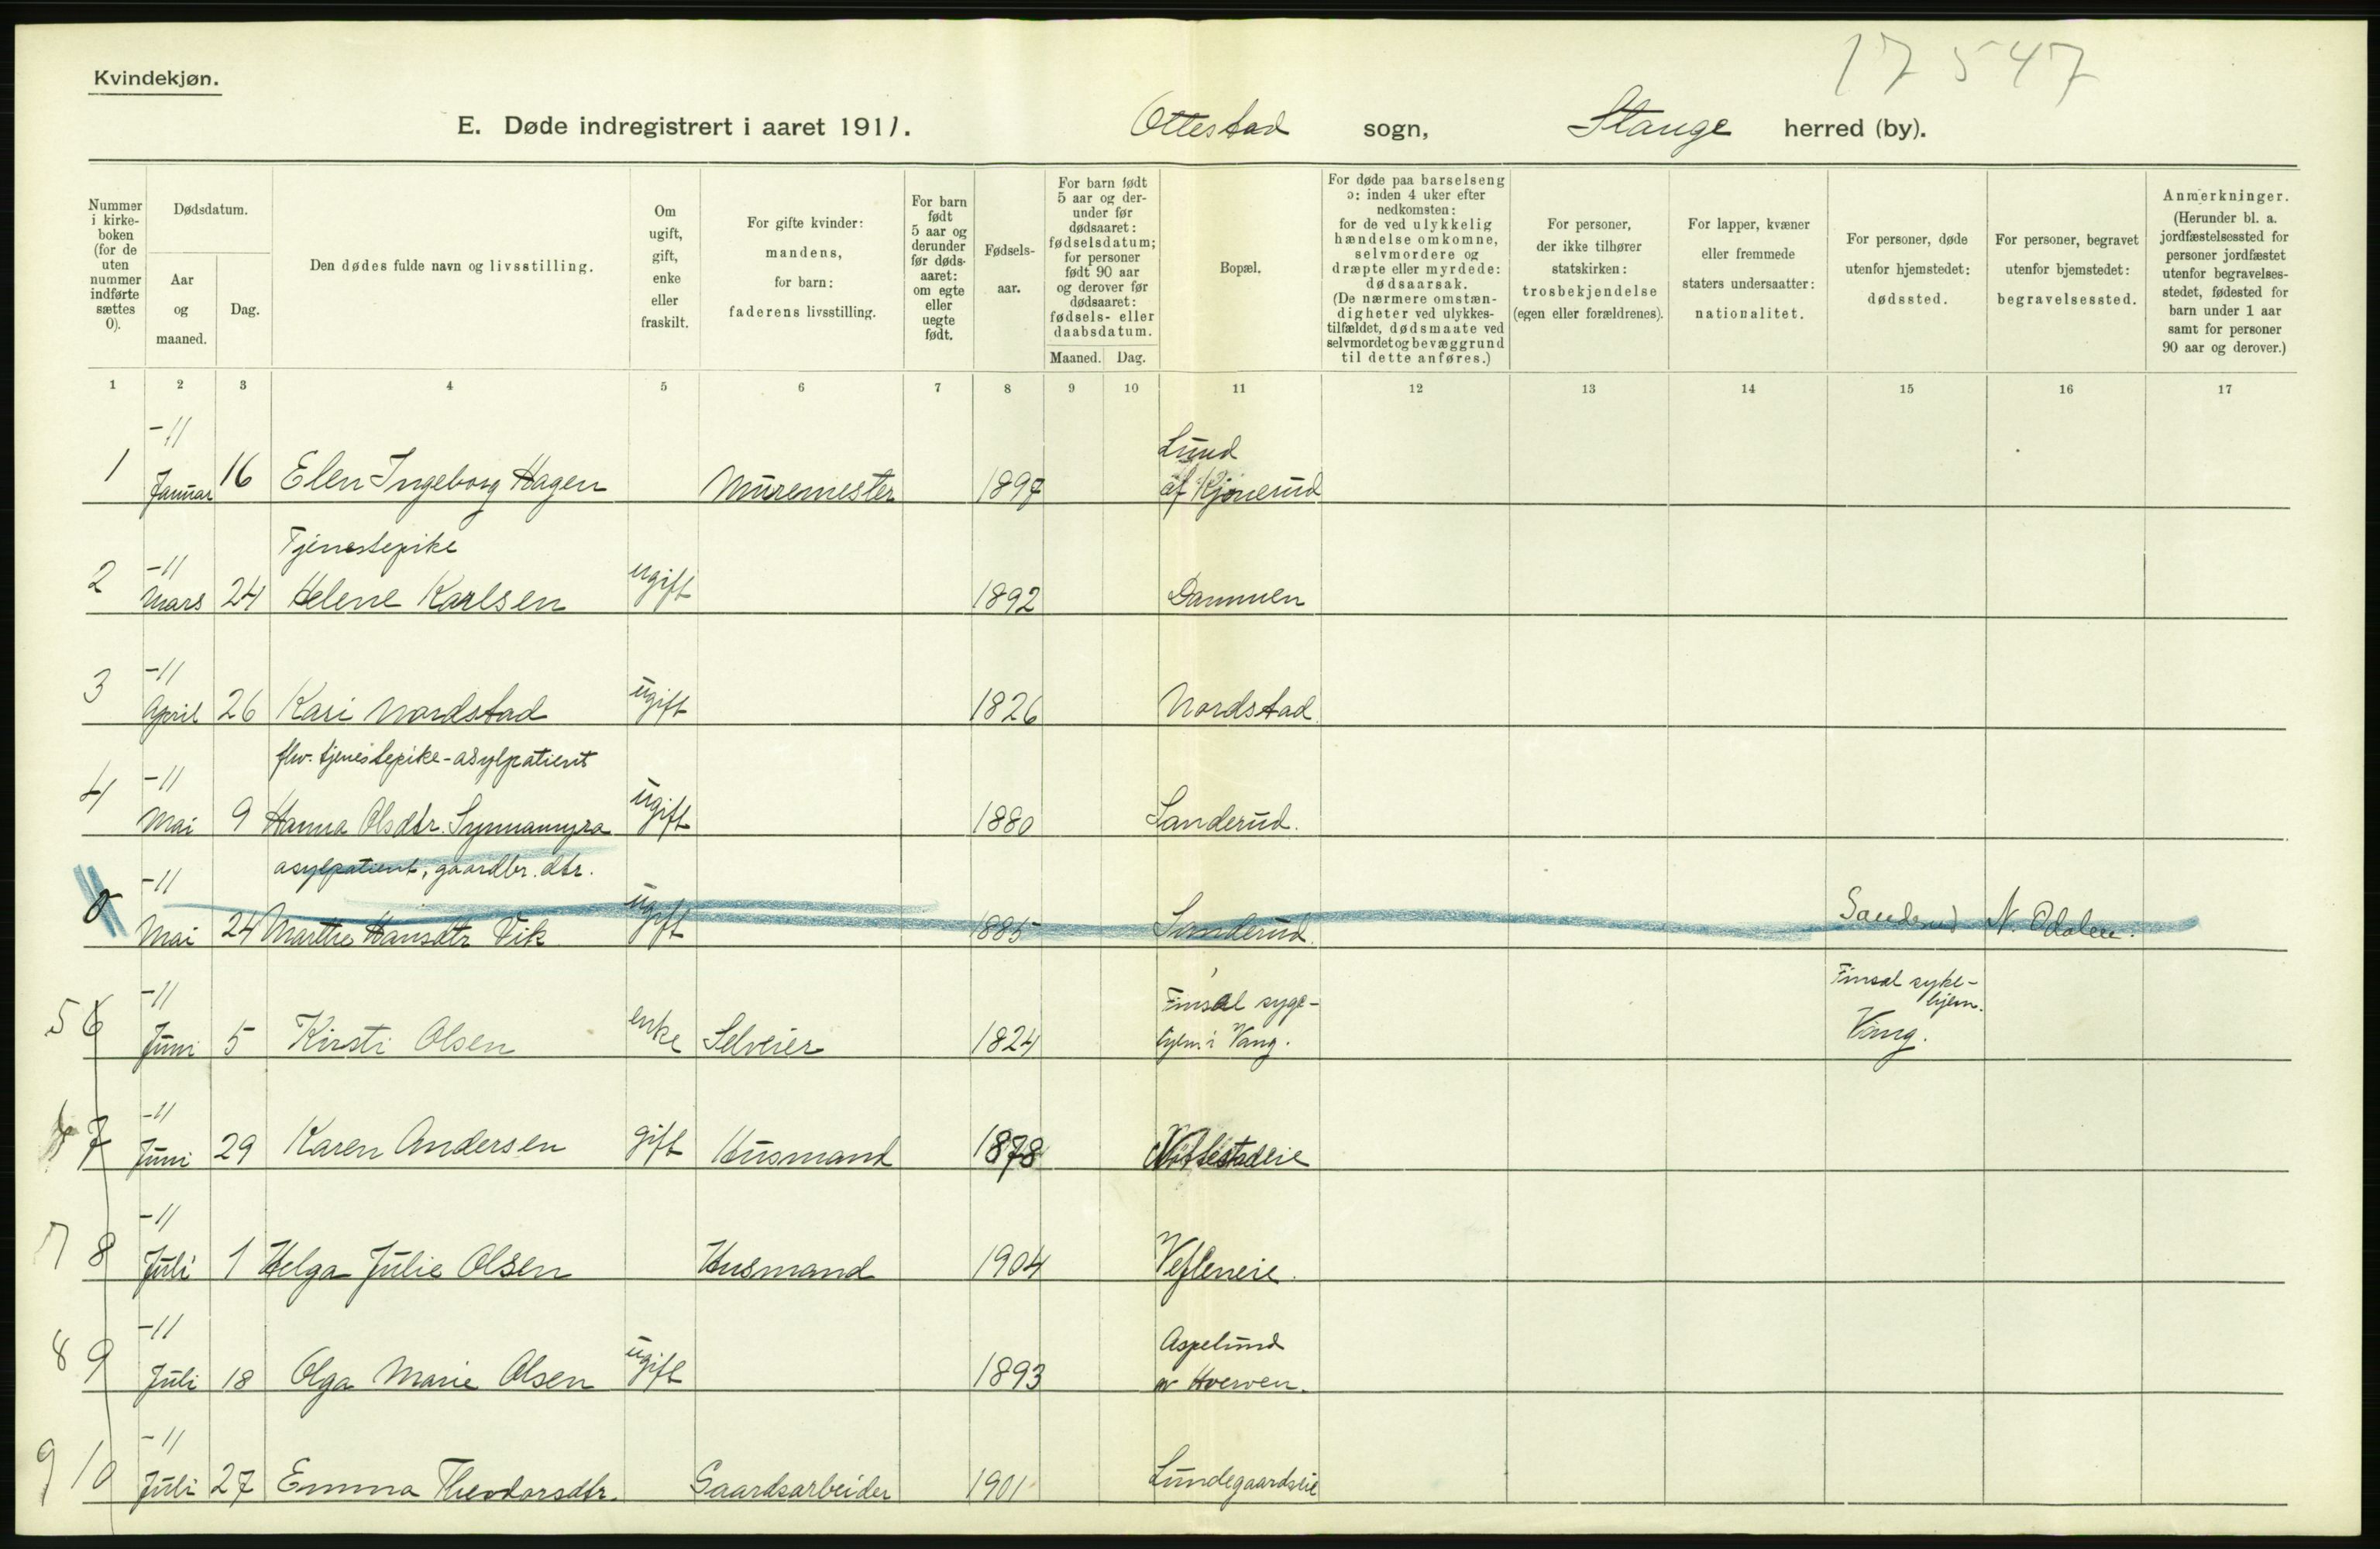 17 547
Kvindekjøn.
E. Døde indregistrert i aaret 1911. Ottestad sogn, Stange herred (by).
Nummer i kirkeboken (for de uten nummer indførte sættes 0).
Dødsdatum.
Aar og maaned.
Dag.
Den dødes fulde navn og livsstilling.
Om ugift, gift, enke eller fraskilt.
For gifte kvinder: mandens, for barn: faderens livsstilling.
For barn født 5 aar og derunder før dødsaaret: om egte eller uegte født.
Fødselsaar.
For barn født 5 aar og derunder før dødsaaret: fødselsdatum; for personer født 90 aar og derover før dødsaaret: fødsels- eller daabsdatum.
Maaned. Dag.
Bopæl.
For døde paa barselseng ɔ: inden 4 uker efter nedkomsten: for de ved ulykkelig hændelse omkomne, selvmordere og dræpte eller myrdede: dødsaarsak. (De nærmere omstændigheter ved ulykkestilfældet, dødsmaate ved selvmordet og bevæggrund til dette anføres.)
For personer, der ikke tilhører statskirken: trosbekjendelse (egen eller forældrenes).
For lapper, kvæner eller fremmede staters undersaatter: nationalitet.
For personer, døde utenfor hjemstedet: dødssted.
For personer, begravet utenfor bjemstedet: begravelsessted.
Anmerkninger. (Herunder bl. a. jordfæstelsessted for personer jordfæstet utenfor begravelsesstedet, fødested for barn under 1 aar samt for personer 90 aar og derover.)
1 2 3 4 5 6 7 8 9 10 11 12 13 14 15 16 17
-11 Lund
1 Januar 16 Elen Ingeborg Hagen Muremester 1897 af Kjonerud
Tjenestepike
-11
2 Mars 24 Helene Karlsen ugift 1892 Dammen
-11
3 April 26 Kari Nordstad ugift 1826 Nordstad
flv. tjenestepike - asylpatient
-11
4 Mai 9 Hanna Olsdtr. Synnamyra ugift 1880 Sanderud.
asylpatient, gaardbr. dtr.
-11
0 Mai 24 Marthe Hansdtr Vik ugift 1885 Sanderud. Sanderud N. Odalen.
-11 Finsal syge- Finsal syke-hjem.
5 6 Juni 5 Kirsti Olsen enke Selveier 1824 hjem i Vang. Vang.
-11
7 Juni 29 Karen Andersen gift Husmand 1878
-11
7 8 Juli 1 Helga Julie Olsen Husmand 1904 Vefleneie.
-11 Aspelund
8 9 Juli 18 Olga Marie Olsen ugift 1893 av Hverven.
-11
9 10 Juli 27 Emma Theodorsdtr. Gaardsarbeider 1901 Lundegaardseie